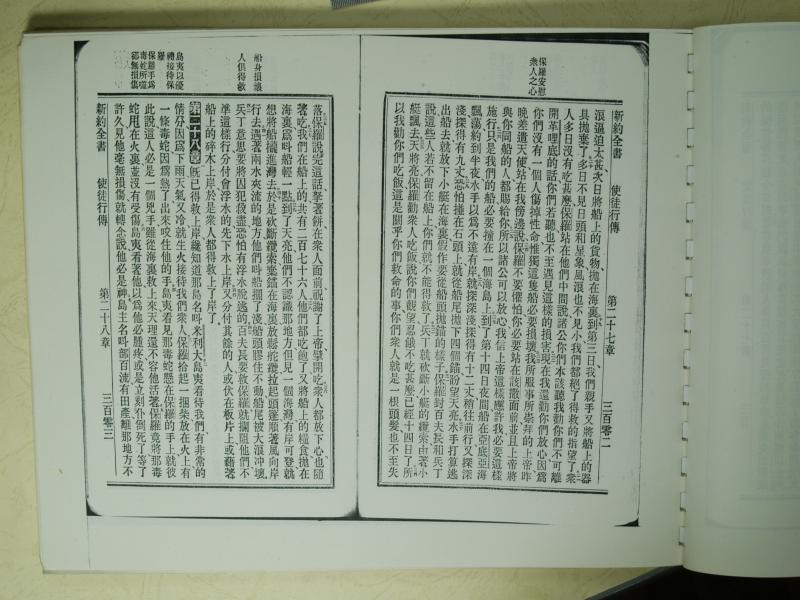 新約全書　使徒行傳　第二十七章　三百零二
保羅安慰
衆人之心
浪逼迫太甚次日將船上的貨物拋在海裏到第三日我們親手又將船上的器
具拋棄了多日不見日頭和星象風浪也不見小我們都絕了得救的指望了衆
人多日沒有吃甚麽保羅站在他們中間說諸公你們本該聽我勸你們不可離
開革哩底的話你們若聽也不至遇見這樣的損害現在我還勸你們放心因爲
你們沒有一個人傷掉性命惟獨這隻船必要損壞我所服事所崇拜的上帝昨
晚差遣天使站在我傍邊說保羅不要懼怕你必要站在該撒面前並且上帝將
與你同船的人都賜給你所以諸公可以放心我信上帝這樣應許我必要這樣
施行只是我們的船必要撞在一個海島上到了第十四日夜間船在亞底亞海
飄蕩約到半夜水手以爲不遠有岸就探深淺探得有十二丈稍往前行又探深
淺探得有九丈恐怕撞在石頭上就從船尾拋下四個錨盼望天亮水手打算逃
出船去就放下小艇在海裏假作要從船頭拋錨的樣子保羅對百夫長和兵丁
說這些人若不留在船上你們就不能得救了兵丁就砍斷小艇的纜索由著小
艇飄去天將亮保羅勸衆人吃飯說你們觀望忍餓不吃甚麽已經十四日了所
以我勸你們吃飯這是關乎你們救命的事你們衆人就是一根頭髮也不至失
船身損壞
人俱得救
島夷以優
禮接待保
羅
保羅手爲
毒蛇所噬
卻無損傷
落保羅說完這話拏著餅在衆人面前祝謝了上帝擘開吃衆人都放下心也隨
著吃我們在船上的共有二百七十六人他們都吃飽了又將船上的糧食拋在
海裏爲叫船輕一點到了天亮他們不認識那地方但見一個海灣有岸可登就
想將船攏進灣去於是砍斷纜索棄錨在海裏放鬆舵纜拉起頭篷順著風向岸
行去遇著兩水夾流的地方他們叫船擱了淺船頭膠住不動船尾被大浪冲壞
兵丁意思要將囚犯殺盡恐怕有浮水脫逃的百夫長要救保羅就攔阻他們不
準這樣行分付會浮水的先下水上岸又分付其餘的人或伏在板片上或藉著
船上的碎木上岸於是衆人都得救上了岸了
第二十八章　旣已得救上岸纔知道那島名叫米利大島夷看待我們有非常的
情分因爲下雨天氣又冷就生火接待我們衆人保羅拾起一捆柴放在火上有
一條毒蛇因爲熱了出來咬住他的手島夷看見那毒蛇懸在保羅的手上就彼
此說這人必是一個兇手雖從海裏救上來天理還不容他活著保羅竟將那毒
蛇甩在火裏並沒有受傷島夷看著他以爲他必腫疼或是立刻仆倒死了等了
許久見他毫無損傷就轉念說他必是神島主名叫部百流有田產離那地方不
新約全書　使徒行傳　第二十八章　三百零三